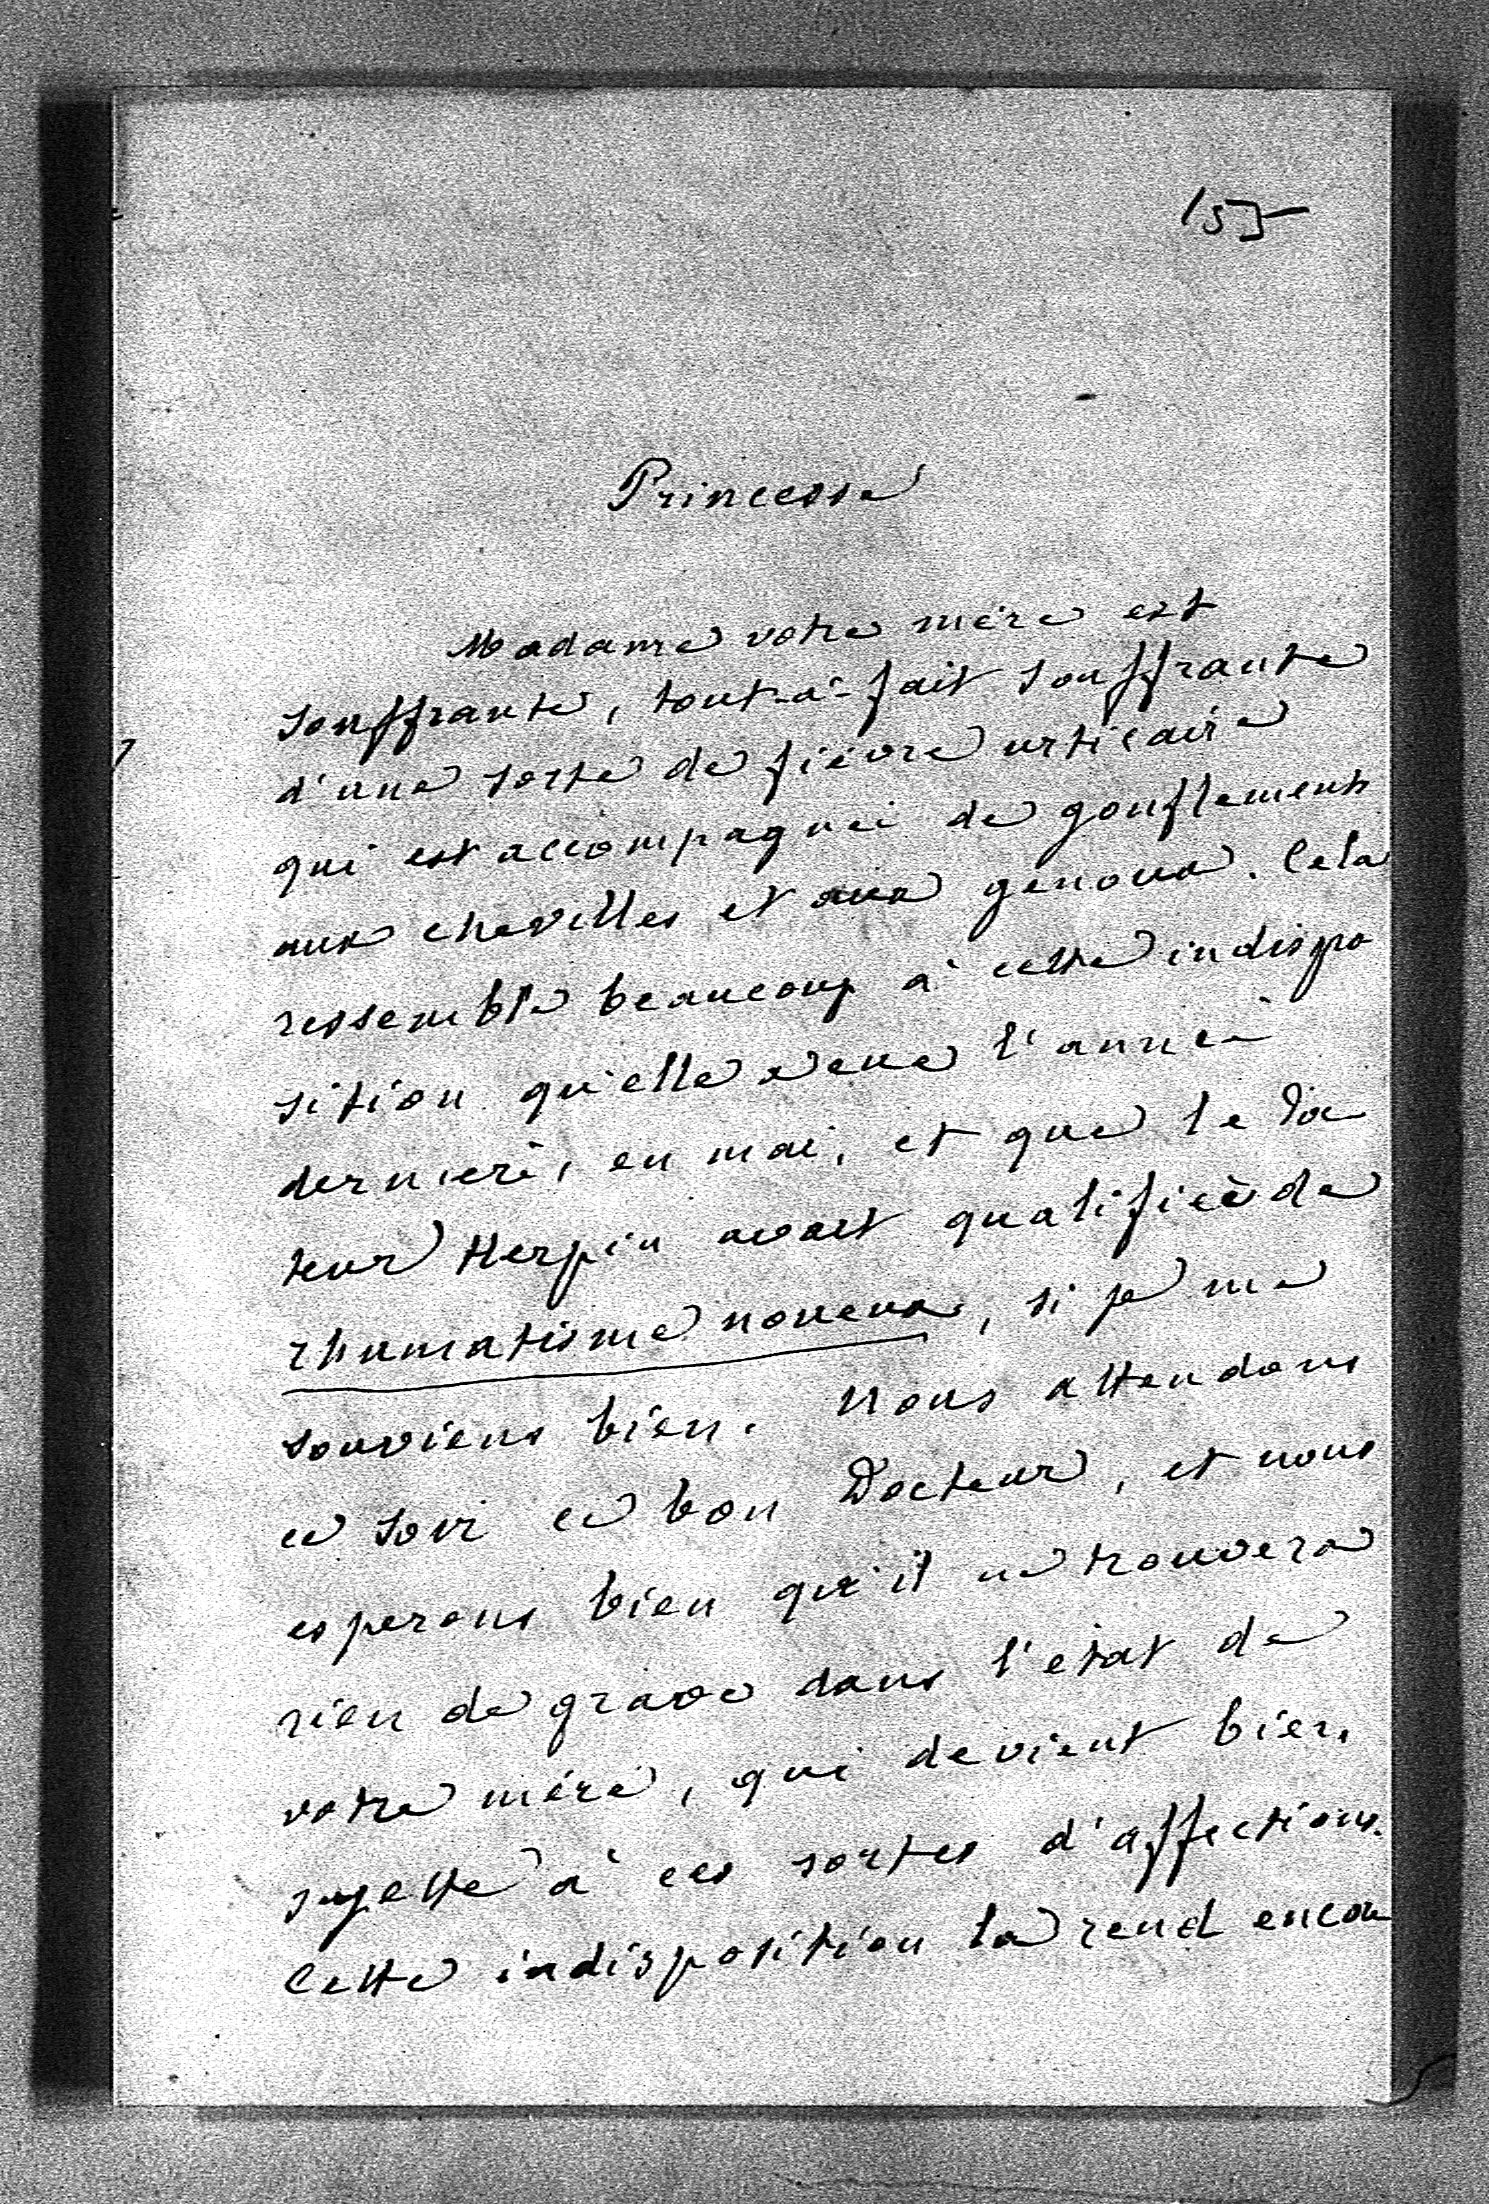 155
Princesse
Madame votre mère est
souffrante, tout-à-fait souffrante
d'une sorte de fièvre urticaire
qui est accompagnéi de gonflements
aux chevilles et aux genoux. Cela
ressemble beaucoup à cette indispo
sition qu'elle a eue l'année
derniere, en mai, et que le Doc
teur Herpin avait qualifiée de
rhumatisme noueux, si je me
souviens bien. Nous attendons
ce soir ce bon Docteur, et nous
esperons bien qu'il ne trouvera
rien de grave dans l'etat de
votre mère, qui devient bien
sujette à ces sortes d'affections.
Cette indisposition la rend encore